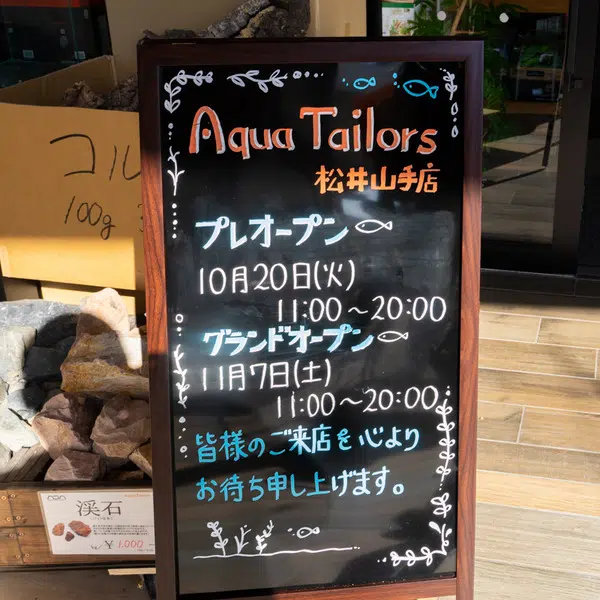 Aqua Tailors
松井山手店
プレオープン
10月20日(火)
11:00〜20:00
グランドオープン
11月7日(土)
11:00〜20:00
皆様のご来店を心より
お待ち申し上げます。
コル
100g
渓石